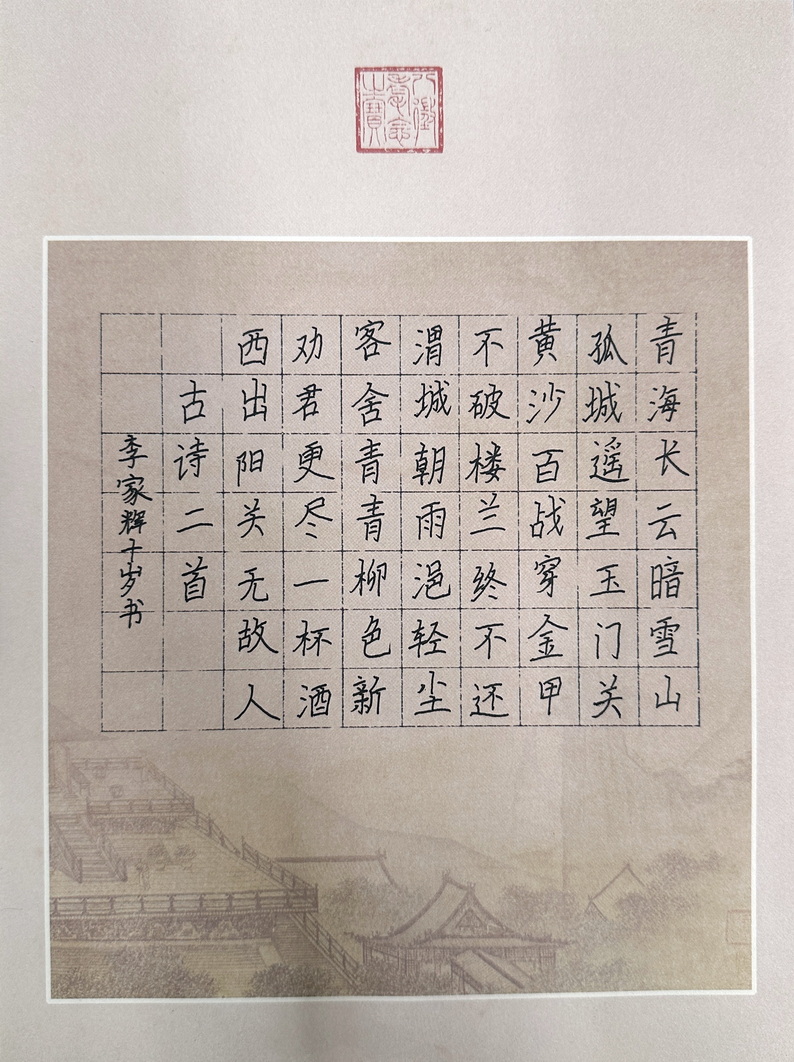 八徵
耄念
之寶
青海长云暗雪山
孤城遥望玉门关
黄沙百战穿金甲
不破楼兰终不还
渭城朝雨浥轻尘
客舍青青柳色新
劝君更尽一杯酒
西出阳关无故人
古诗二首
李家辉十岁书